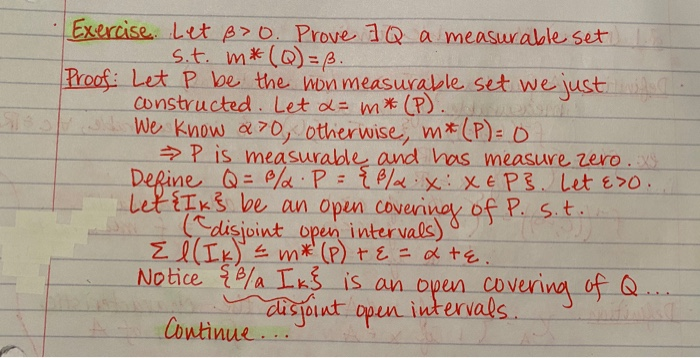 · Exercise. Let β>0. Prove ∃ Q a measurable set
s.t. m*(Q)=β.
Proof: Let P be the nonmeasurable set we just
constructed. Let α= m*(P).
We know α>0, otherwise, m*(P)=0
⇒ P is measurable and has measure zero.
Define Q= β/α · P = {β/α · x : x ∈ P}. Let ε>0.
Let {Iₖ} be an open covering of P. s.t.
(↑disjoint open intervals)
Σ l(Iₖ) ≤ m*(P) + ε = α + ε.
Notice {β/α Iₖ} is an open covering of Q...
disjoint open intervals.
Continue...